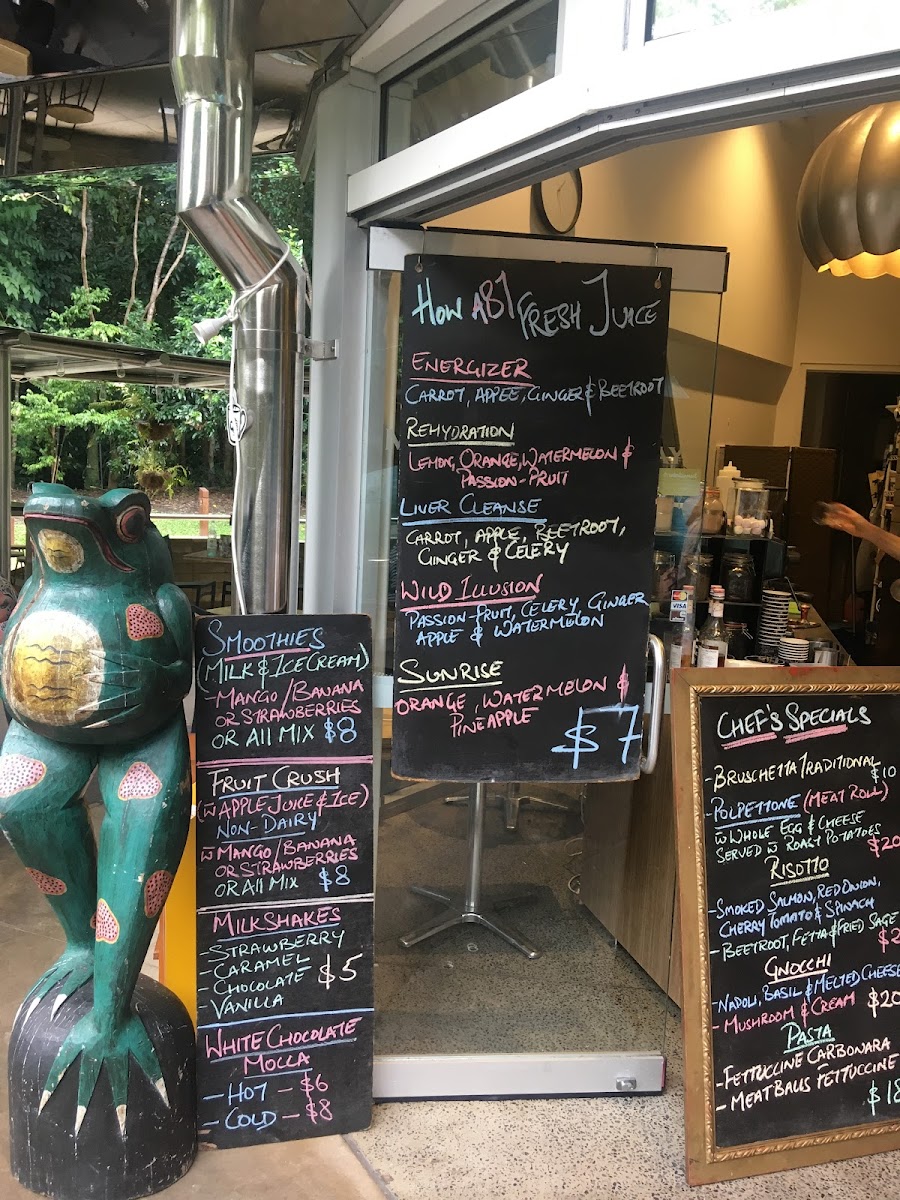 How aB1 FRESH JUICE
ENERGIZER
CARROT, APPEE, GINGER & BEETROOT
REHYDRATION
LEMON, ORANGE, WATERMELON &
PASSION-FRUIT
LIVER CLEANSE
CARROT, APPLE, BEETROOT,
GINGER & CELERY
WILD ILLUSION
PASSION-FRUIT, CELERY, GINGER
APPLE & WATERMELON
SUNRISE
ORANGE, WATERMELON &
PINEAPPLE
$7
SMOOTHIES
(MILK & ICE CREAM)
- MANGO / BANANA
OR STRAWBERRIES
OR All MIX $8
FRUIT CRUSH
(w̄ APPLE JUICE & ICE)
NON-DAIRY
w̄ MANGO / BANANA
OR STRAWBERRIES
OR All MIX $8
MILKSHAKES
- STRAWBERRY
- CARAMEL
- CHOCOLATE $5
- VANILLA
WHITE CHOCOLATE
MOCCA
- HOT - $6
- COLD - $8
VISA
CHEF'S SPECIALS
- BRUSCHETTA TRADITIONAL
$10
- POLPETTONE (MEAT ROLL)
w̄ WHOLE EGG & CHEESE
SERVED w̄ ROAST POTATOES
$20
RISOTTO
- SMOKED SALMON, RED ONION,
CHERRY TOMATO & SPINACH
- BEETROOT, FETTA & FRIED SAGE
GNOCCHI
- NAPOLI, BASIL & MELTED CHEESE
- MUSHROOM & CREAM $20
PASTA
- FETTUCCINE CARBONARA
- MEATBALLS FETTUCCINE
$18